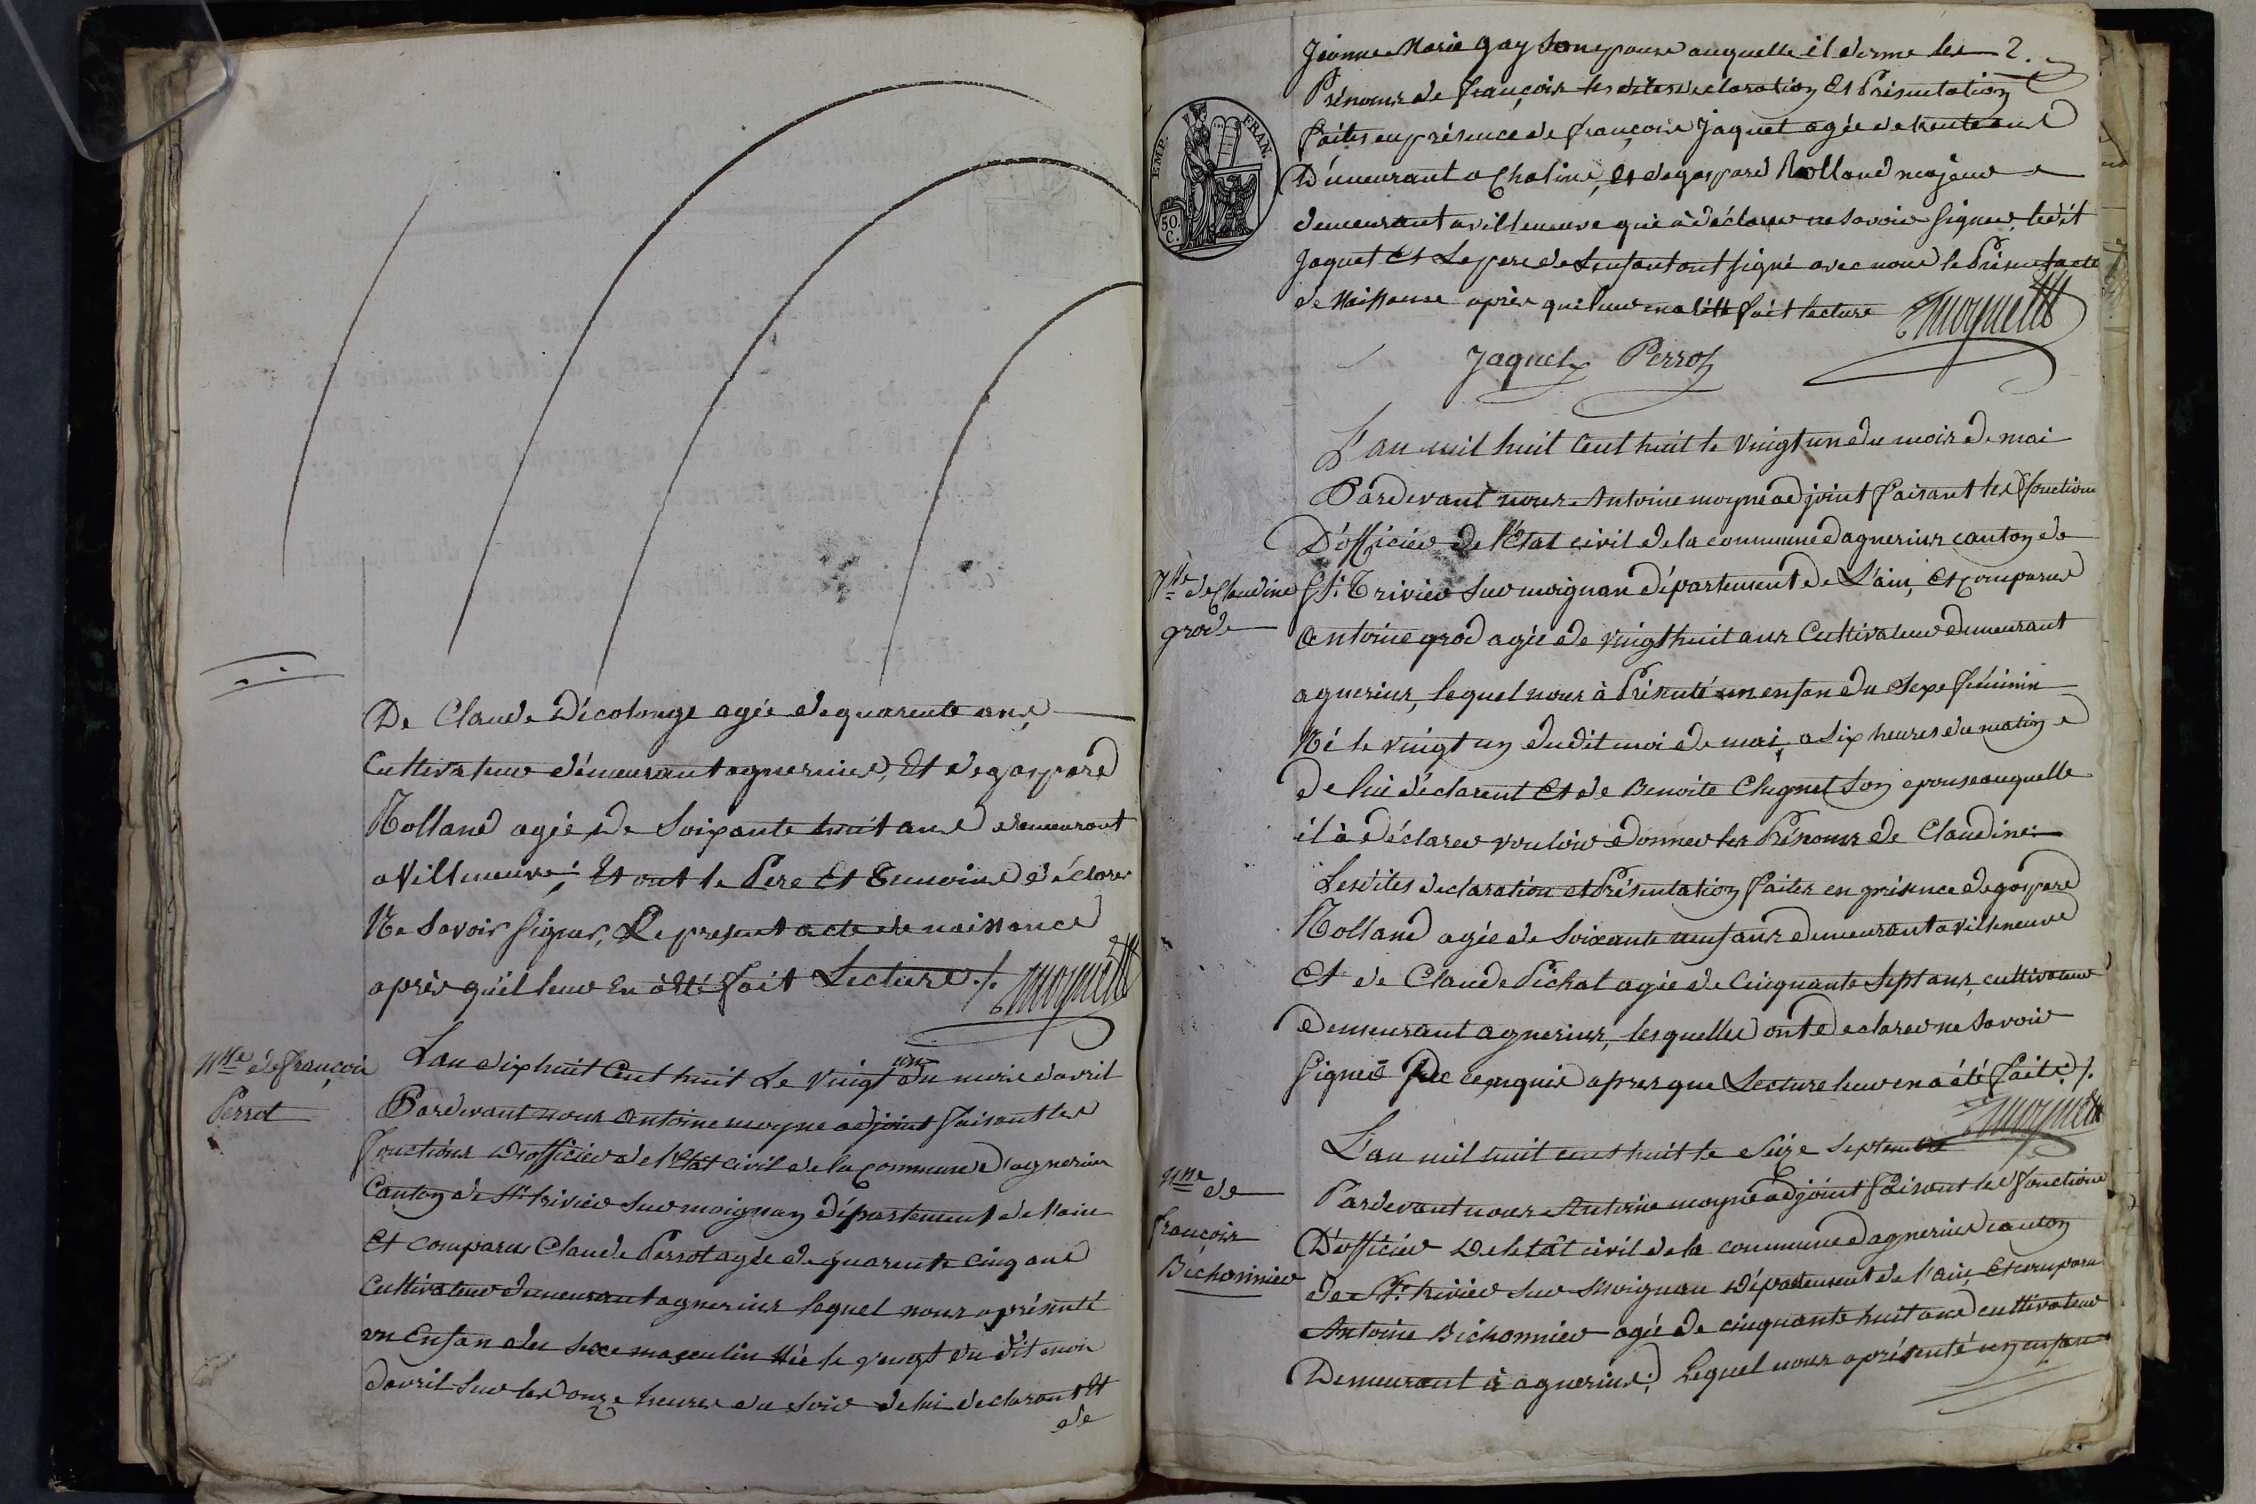 De Claude Décolonge agée de quarente ans
Cultivateur démeurant agnerins, Et de gaspard
Rolland agée de Soixante huit ans demeurant
a Villeneuve; Et ont le Pere Et temoins déclarer
Ne Savoir Signer, Le present acte de naissance
après qu'il leur En à été fait Lecture ./. Moyne
Nce de françois
Perrot
Lan dixhuit Cent huit Le Vingt un du mois davril
Pardevant nous Antoine moyne adjoint faisant les
fonctions d'officier de l'état civil de la Commune d'agnerins
Canton de St. trivier Sur moignan département de l'ain
Et comparus Claude Perrot agée de quarente cinq ans
Cultivateur demeurant agnerins lequel nous a présenté
un Enfan du sexe masculin Née le vingt du dit mois
davril Sur les onze heures du soir de lui declarant Et
de
Jeanne Marie gay Son epouse auquelle il donne les 2.
Prénoms de françois les dites declaration Et Présentation
faites en présence de françois Jaquet agée de trente ans
Démeurant a Chaline, et de gaspard Rolland majeur
demeurant a villeneuve qui à déclarer ne Savoir Signer, ledit
Jaquet Et Le pere de Lenfant ont signé avec nous le Présent acte
de Naissance après que leur en a été fait lecture Moyne
Jaquet Perrot
EMP. FRAN.
50 C.
L'an mil huit Cent huit le Vingt un du mois de mai
Pardevant nous Antoine moyne adjoint faisant les fonction
D'officier de l'Etat civil de la commune dagnerins canton de
Nce de Claudine
grod
St. Trivier Sur moignan département de L'ain, Et comparus
Antoine grod agée de vingt huit ans Cultivateur demeurant
agnerins, lequel nous à Présenté un enfan du Sexe féminin
Né le vingt un dudit moi de mai, a Six heures du matin
de lui déclarent Et de Benoite Clugnet Son epouse auquelle
il à déclarer vouloir donner les Prénoms de Claudine.
Lesdites declaration et Présentation faites en présence de gaspard
Rolland agée de Soixante neuf ans demeurant a villeneuve
Et de Claude Pichat agée de Cinquante Sept ans, cultivateur
demeurant agnerins, lesquelles ont declarer ne Savoir
Signer de ce requis apres que Lecture leur en a été faite ./.
Moyne
L'an mil huit cent huit le Seize Septembre
Nce de
françois
Bichonnier
Pardevant nous Antoine moyne adjoint faisant les fonctions
D'officier De létât civil de la commune dagnerins canton
de St. trivier Sur Moignan Département de l'ain, Et comparu
Antoine Bichonnier agée de cinquante huit ans cultivateur
Demeurant à agnerins; Lequel nous a présenté un enfan